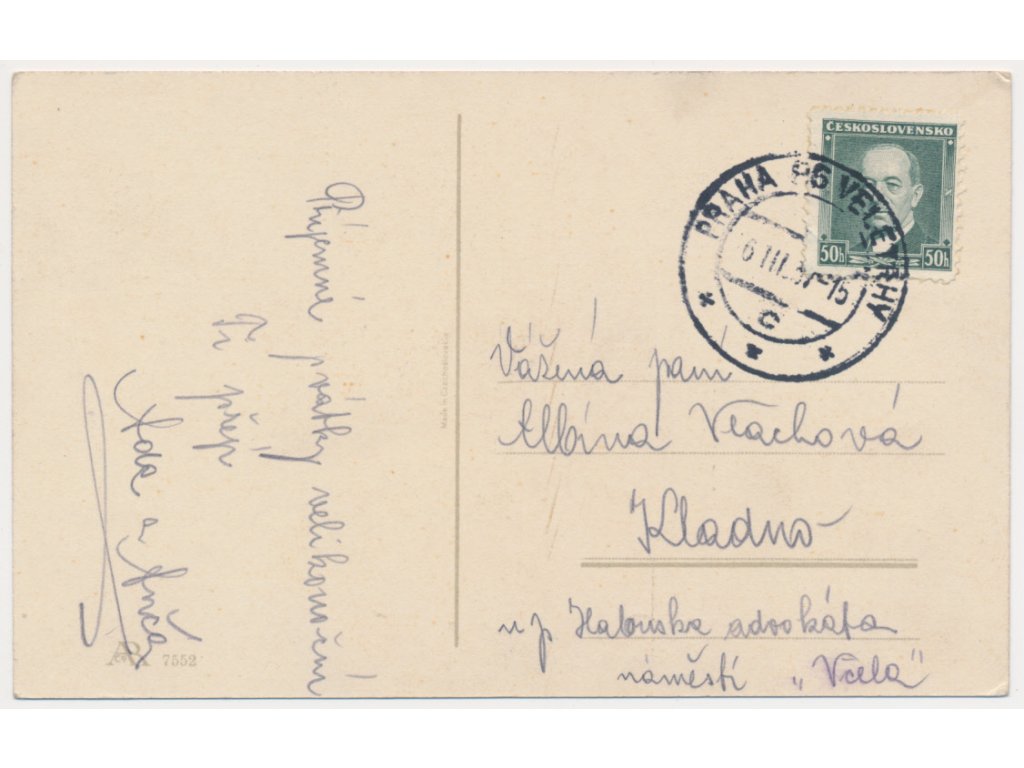 Příjemné svátky velikonoční
Ti přejí
Ada a Anča
AR 7552
Made in Czechoslovakia
ČESKOSLOVENSKO
50h 50h
PRAHA 86 VELETRHY
6.III.37-15
C
Vážená paní
Albína Vlachová
Kladno
u p. Habuska advokáta
náměstí „Včela"